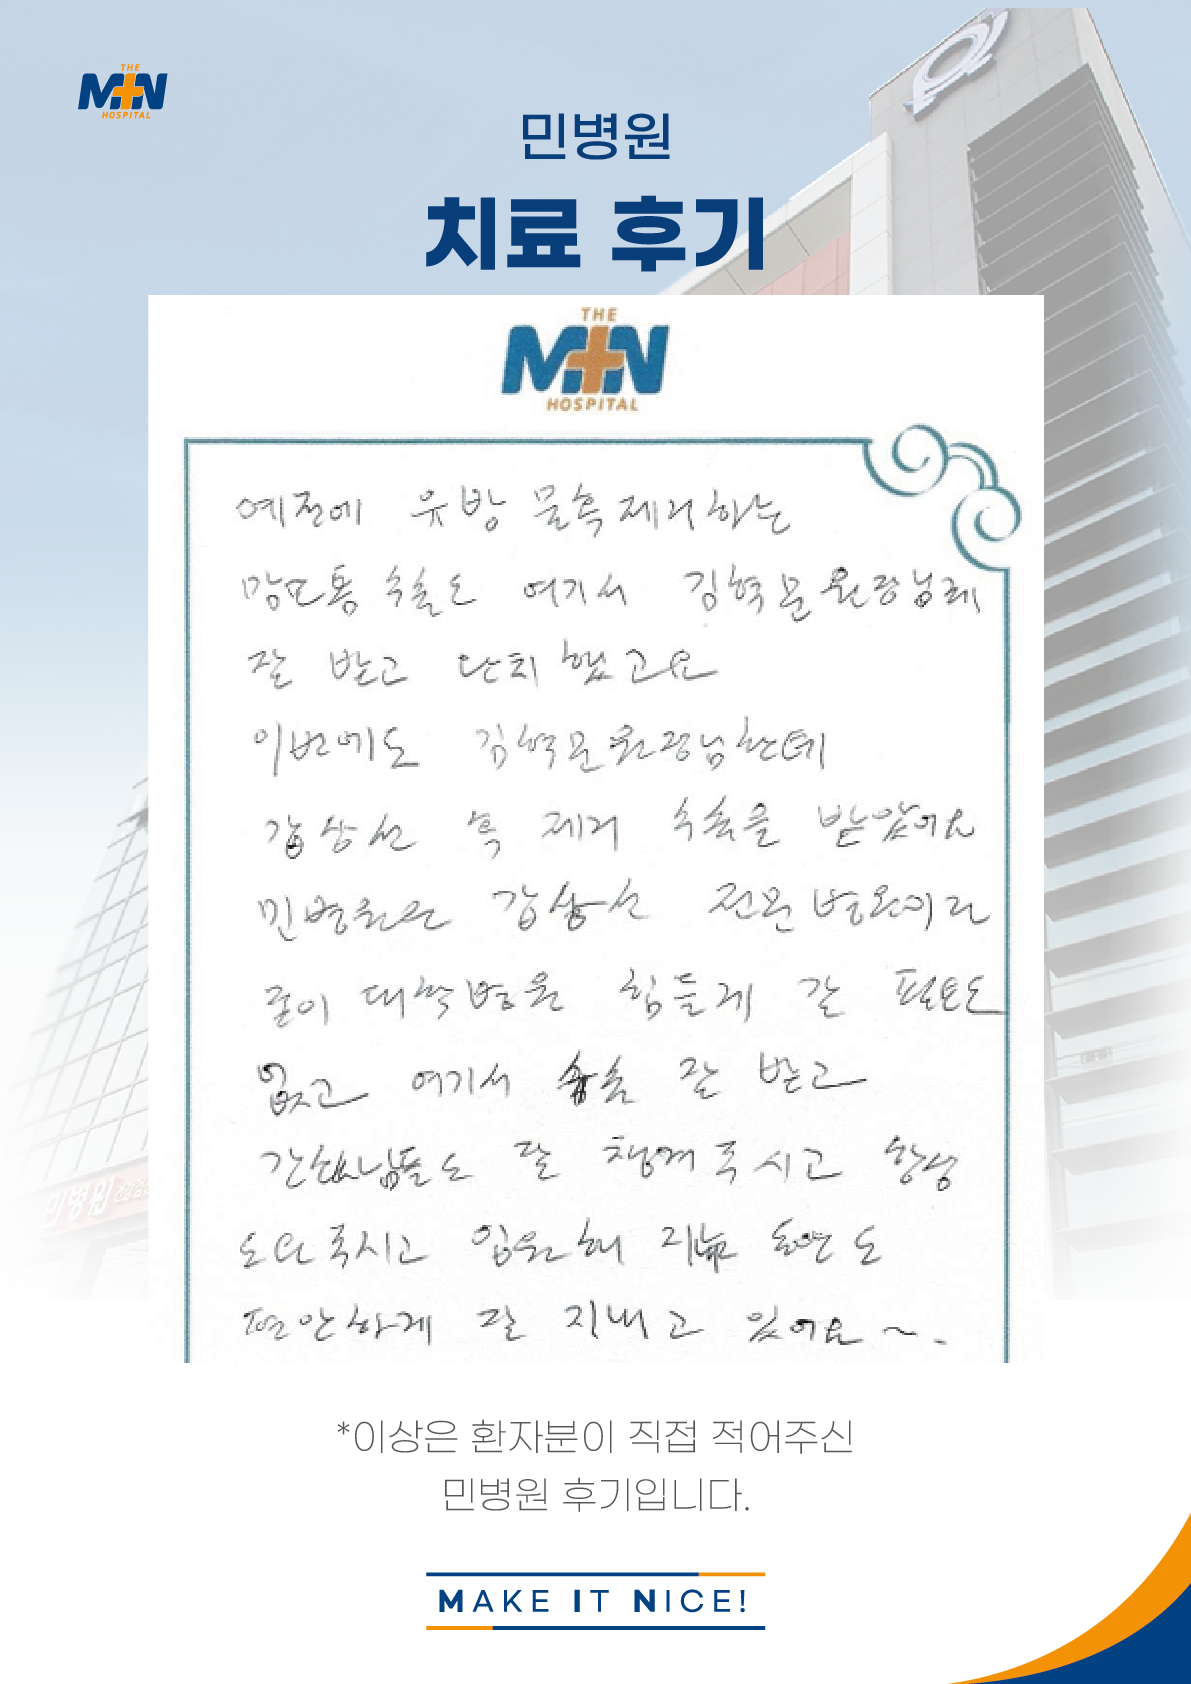 THE
MIN
HOSPITAL
민병원
치료 후기
THE
MIN
HOSPITAL
예전에 유방 물혹 제거하는
맘모톰 수술도 여기서 김혁문 원장님께
잘 받고 단치했고요
이번에도 김혁문 원장님한테
갑상선 혹 제거 수술을 받았어요
민병원은 갑상선 전문 병원이라
굳이 대학병원 힘들게 갈 필요도
없고 여기서 수술 잘 받고
간호사님들도 잘 챙겨주시고 항상
도와주시고 입원해 동안도
편안하게 잘 지내고 있어요~.
민병원
*이상은 환자분이 직접 적어주신
민병원 후기입니다.
MAKE IT NICE!